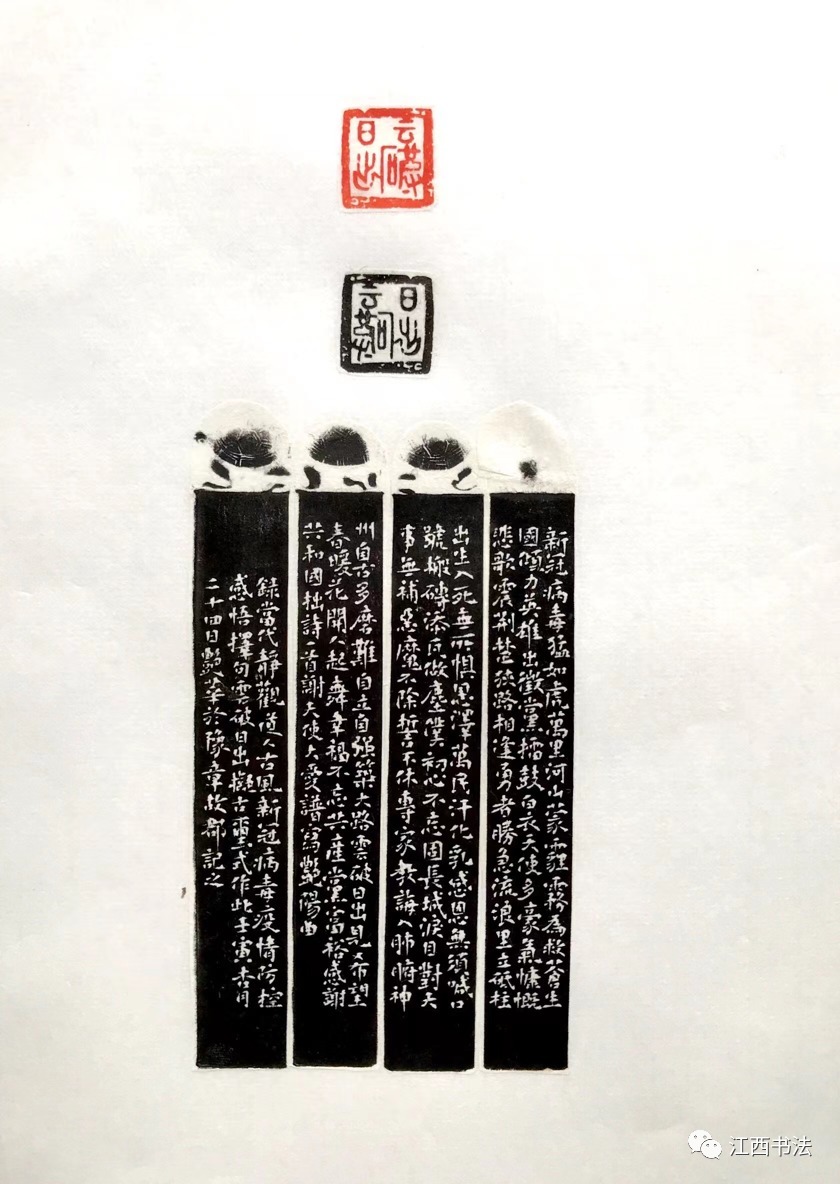 云破日出
云破日出
新冠病毒猛如虎萬里河山蒙霾霧為救蒼生
國傾力英雄出徵黨擂鼓白衣天使多豪氣慷慨
悲歌震荊楚狹路相逢勇者勝急流浪里立砥柱
出生入死無所懼恩澤萬民汗化乳感恩無須喊口
號搬磚添瓦做塵僕初心不忘固長城淚目對天
事無補惡魔不除誓不休專家教誨入肺腑神
州自古多磨難自立自強築大路雲破日出見大希望
春暖花開人起舞幸福不忘共產黨富裕感謝
共和國拙詩一首謝天使大愛譜寫艷陽曲
錄當代靜觀道人古風新冠病毒疫情防控
感悟擇句雲破日出擬古璽式作此壬寅杏月
二十四日艷華於豫章故郡記之
江西书法